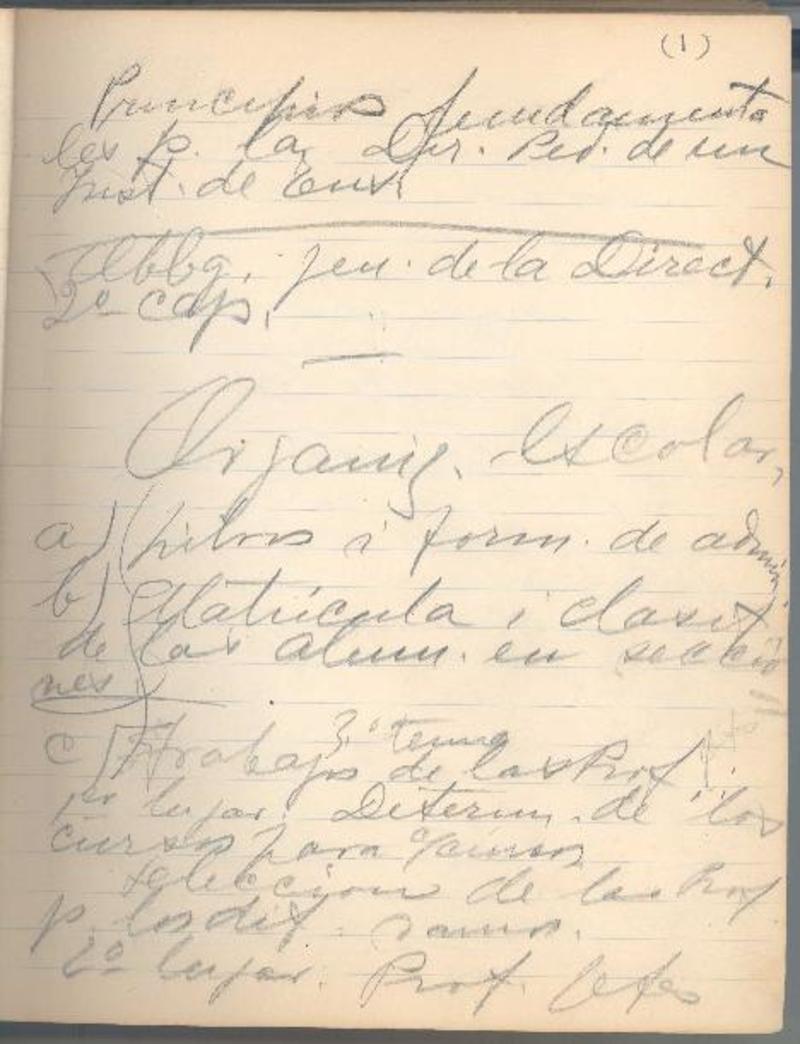 (1)
Principios fundamenta
les p. la Dir. Ped. de un
Inst. de Ens.
Obbg. jen. de la Direct.
2º cap.
Organiz. escolar,
a) libros i form. de admin.
b) Matrícula i clasif.
de las alum. en seccio
nes
3º tema
c) Trabajos de las Prof.
1er lugar. Determ. de los
cursos para c/ramos
selección de las Prof
p. los dif. ramos.
2º lugar. Prof. Jefes